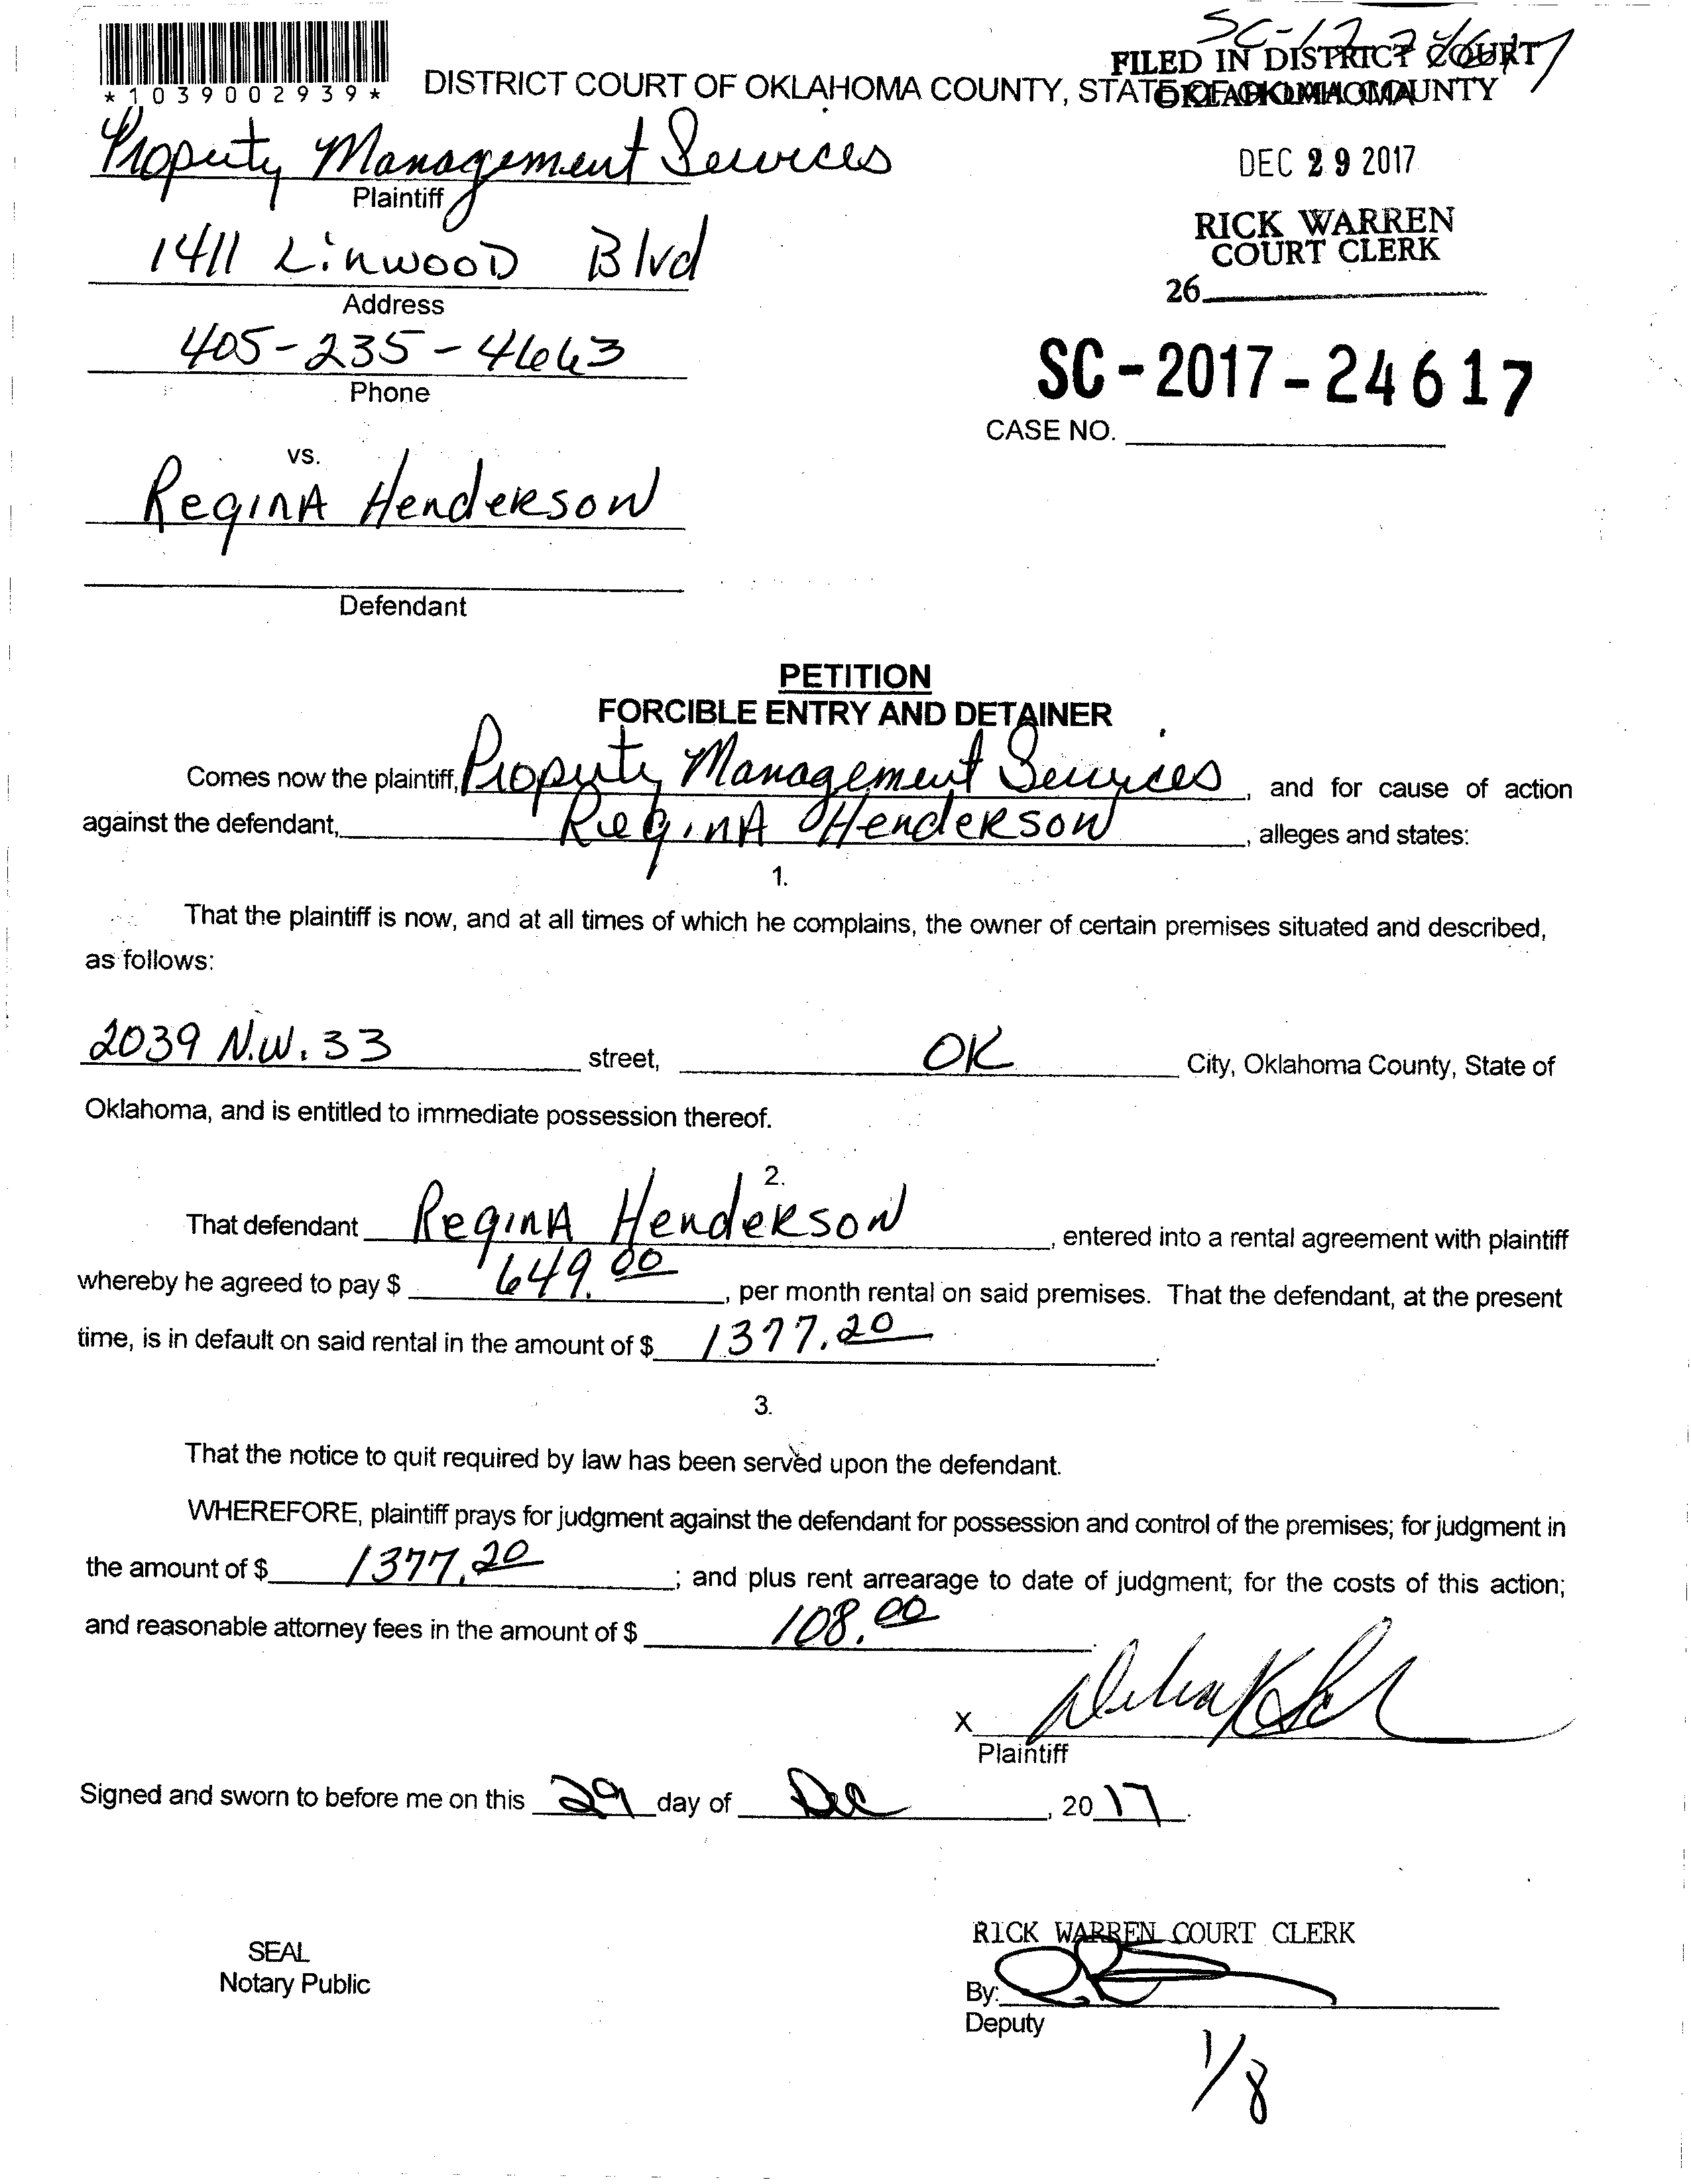 SC-17-24617
*1039002939*
DISTRICT COURT OF OKLAHOMA COUNTY, STATE OF OKLAHOMA
FILED IN DISTRICT COURT
OKLAHOMA COUNTY
Property Management Services
Plaintiff
DEC 29 2017
RICK WARREN
COURT CLERK
26
1411 Linwood Blvd
Address
405-235-4663
Phone
SC-2017-24617
CASE NO.
vs.
Regina Henderson
Defendant
PETITION
FORCIBLE ENTRY AND DETAINER
Comes now the plaintiff, Property Management Services, and for cause of action
against the defendant, Regina Henderson, alleges and states:
1.
That the plaintiff is now, and at all times of which he complains, the owner of certain premises situated and described,
as follows:
2039 N.W. 33 street, OK City, Oklahoma County, State of
Oklahoma, and is entitled to immediate possession thereof.
2.
That defendant Regina Henderson, entered into a rental agreement with plaintiff
whereby he agreed to pay $ 649.00, per month rental on said premises. That the defendant, at the present
time, is in default on said rental in the amount of $ 1377.20.
3.
That the notice to quit required by law has been served upon the defendant.
WHEREFORE, plaintiff prays for judgment against the defendant for possession and control of the premises; for judgment in
the amount of $ 1377.20; and plus rent arrearage to date of judgment; for the costs of this action;
and reasonable attorney fees in the amount of $ 108.00.
X
Plaintiff
Signed and sworn to before me on this 29 day of Dec, 2017.
RICK WARREN COURT CLERK
SEAL
Notary Public
By:
Deputy
1/8